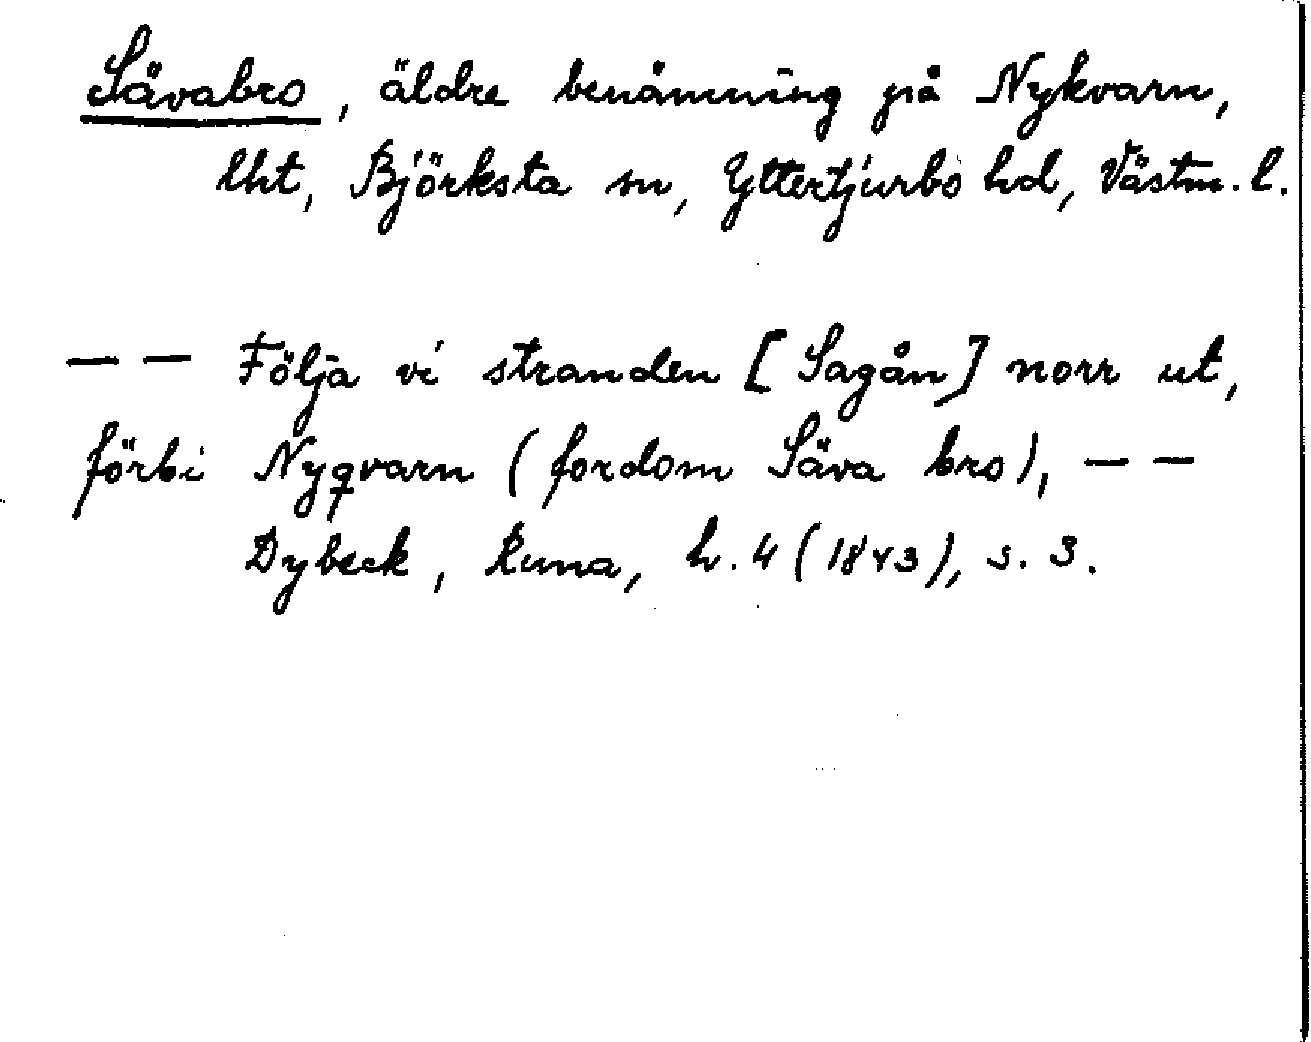 Sävabro, äldre benämning på Nykvarn,
lht, Björksta sn, Yttertjurbo hd, Västm. l.
— — Följa vi stranden [Sagån] norr ut,
förbi Nyqvarn (fordom Säva bro), — —
Dybeck, Runa, h. 4 (1843), s. 3.